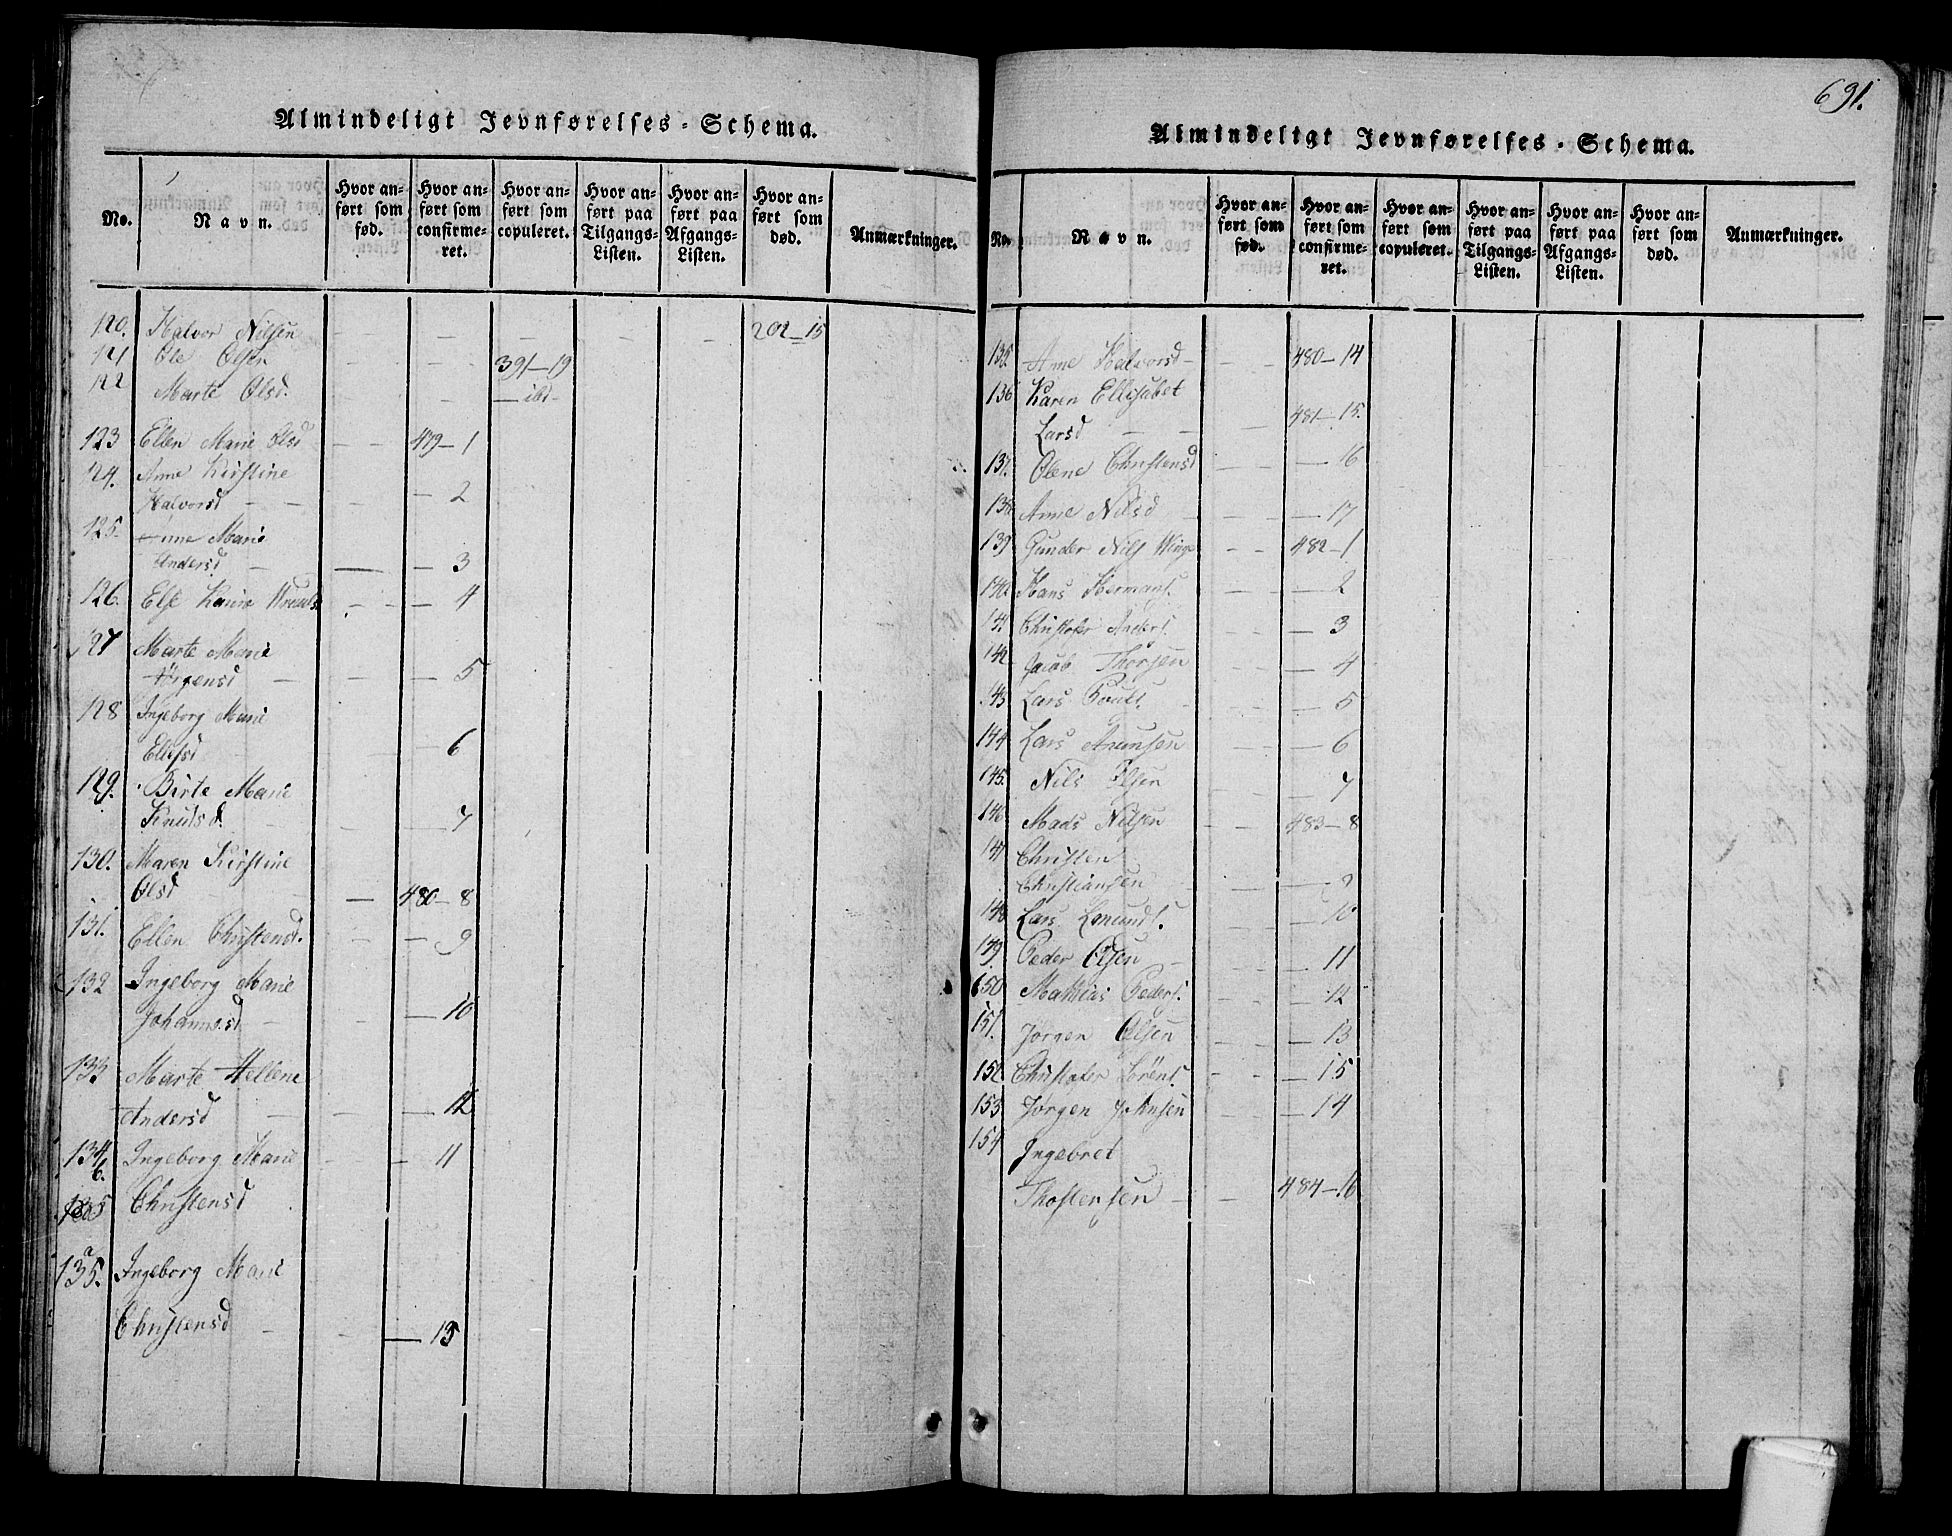 Almindeligt Jevnførelses-Schema.
No. | Navn. | Hvor anført som fød. | Hvor anført som confirmeret. | Hvor anført som copuleret. | Hvor anført paa Tilgangs-Listen. | Hvor anført paa Afgangs-Listen. | Hvor anført som død. | Anmærkninger.
120. Halvor Nilsen — — — — — 202—15
121 Ole Olsen — — — 391—19
122 Marte Olsd. — — — ibd—
123 Ellen Marie Olsd — — 479—1
124. Anne Kirstine
Halvorsd — — — 2
125. Anne Marie
Andersd — — — 3
126. Else Karine — — — 4
127 Marte Marie
Jörgensd — — — 5
128 Ingeborg Marie
Ellefsd — 6
129. Birte Marie
Knudsd. — — 7
130. Maren Kirstine
Olsd — 480—8
131. Ellen Christensd. — — 9
132 Ingeborg Marie
Johannesd — — — 10
133 Marte Hellene
Andersd — — — 12
134 Ingeborg Marie — — 11
b.
135 Christensd
a
135. Ingeborg Marie
Christensd — — — 13
691.
Almindeligt Jevnførelses-Schema.
No. | Navn. | Hvor anført som fød. | Hvor anført som confirmeret. | Hvor anført som copuleret. | Hvor anført paa Tilgangs-Listen. | Hvor anført paa Afgangs-Listen. | Hvor anført som død. | Anmærkninger.
135. Anne Halvorsd — 480—14
136 Karen Ellisabet
Larsd — — 481—15.
137. Olene Christensd — — — 16
138 Anne Nilsd — — — 17
139 Gunder Nils Winge — — 482—1
140. Hans Hermans. — — — 2
141 Christofer Anders. — — — 3
142 Jacob Thorsen — — — 4
143 Lars Pouls. — — 5
144 Lars Amunsen — — — 6
145. Nils Olsen — — 7
146. Mads Nilsen — — 483—8
147 Christen
Christiansen — — — 9
148 Lars Amunds. — — 10
149. Peder Olsen — — — 11
150 Mathias Peders. — — — 12
151. Jörgen Olsen — — — 13
152 Christofer Sörens. — — — 15
153 Jörgen Johnsen — — 14
154 Ingebret
Thostensen — — 484—16